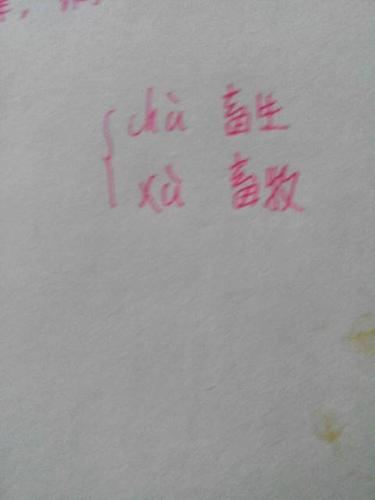 chù 畜生
xù 畜牧